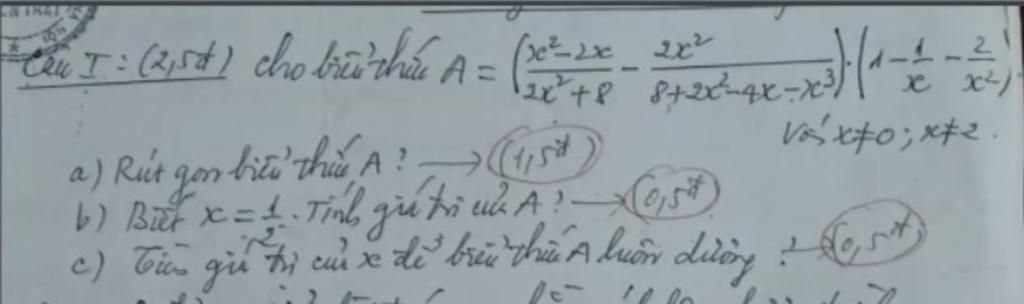 Câu I: (2,5đ) cho biểu thức A = (x²-2x/2x²+8 - 2x²/8+2x²-4x-x³).(1-1/x-2/x²)
Với x≠0; x≠2.
a) Rút gọn biểu thức A? → (1,5đ)
b) Biết x = 1/2. Tính giá trị của A? → (0,5đ)
c) Tìm giá trị của x để biểu thức A luôn dương? → (0,5đ)